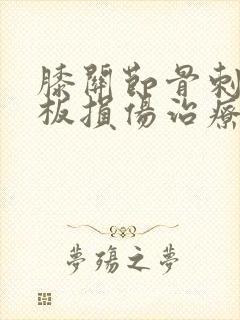 膝關節骨刺
板損傷治療
夢殤之夢